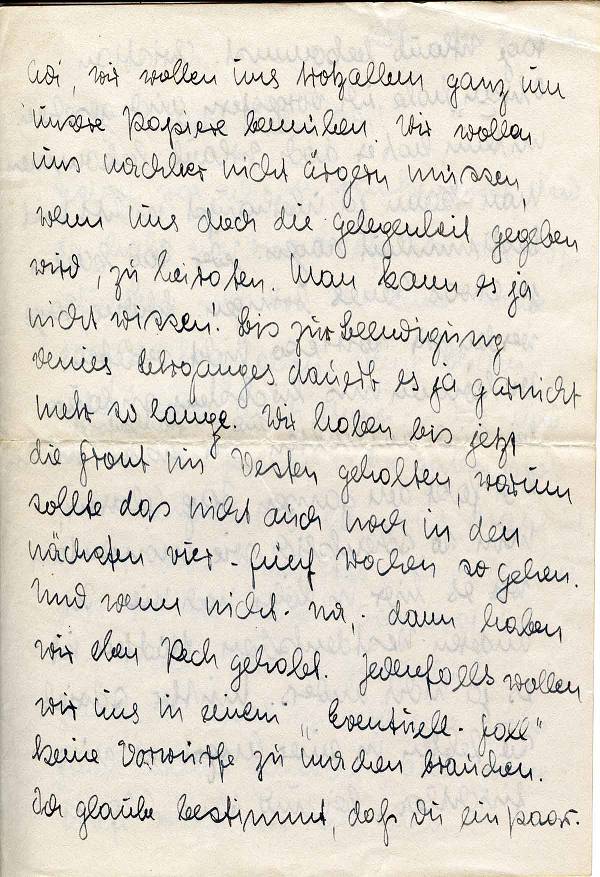 Adi, wir wollen uns trotzallem ganz um
unsere Papiere bemühen. Wir wollen
uns nachher nicht ärgern müssen,
wenn uns doch die Gelegenheit gegeben
wird, zu heiraten. Man kann es ja
nicht wissen! Bis zur Beendigung
Lehrganges dauert es ja garnicht
mehr so lange. Wir haben bis jetzt
die Front im Westen gehalten, warum
sollte das nicht auch noch in den
nächsten vier - fünf Wochen so gehen.
Und wenn nicht - na, - dann haben
wir eben Pech gehabt. Jedenfalls wollen
wir uns in einem „Eventuell-Fall"
keine Vorwürfe zu machen brauchen.
Ich glaube bestimmt, daß Du ein paar-